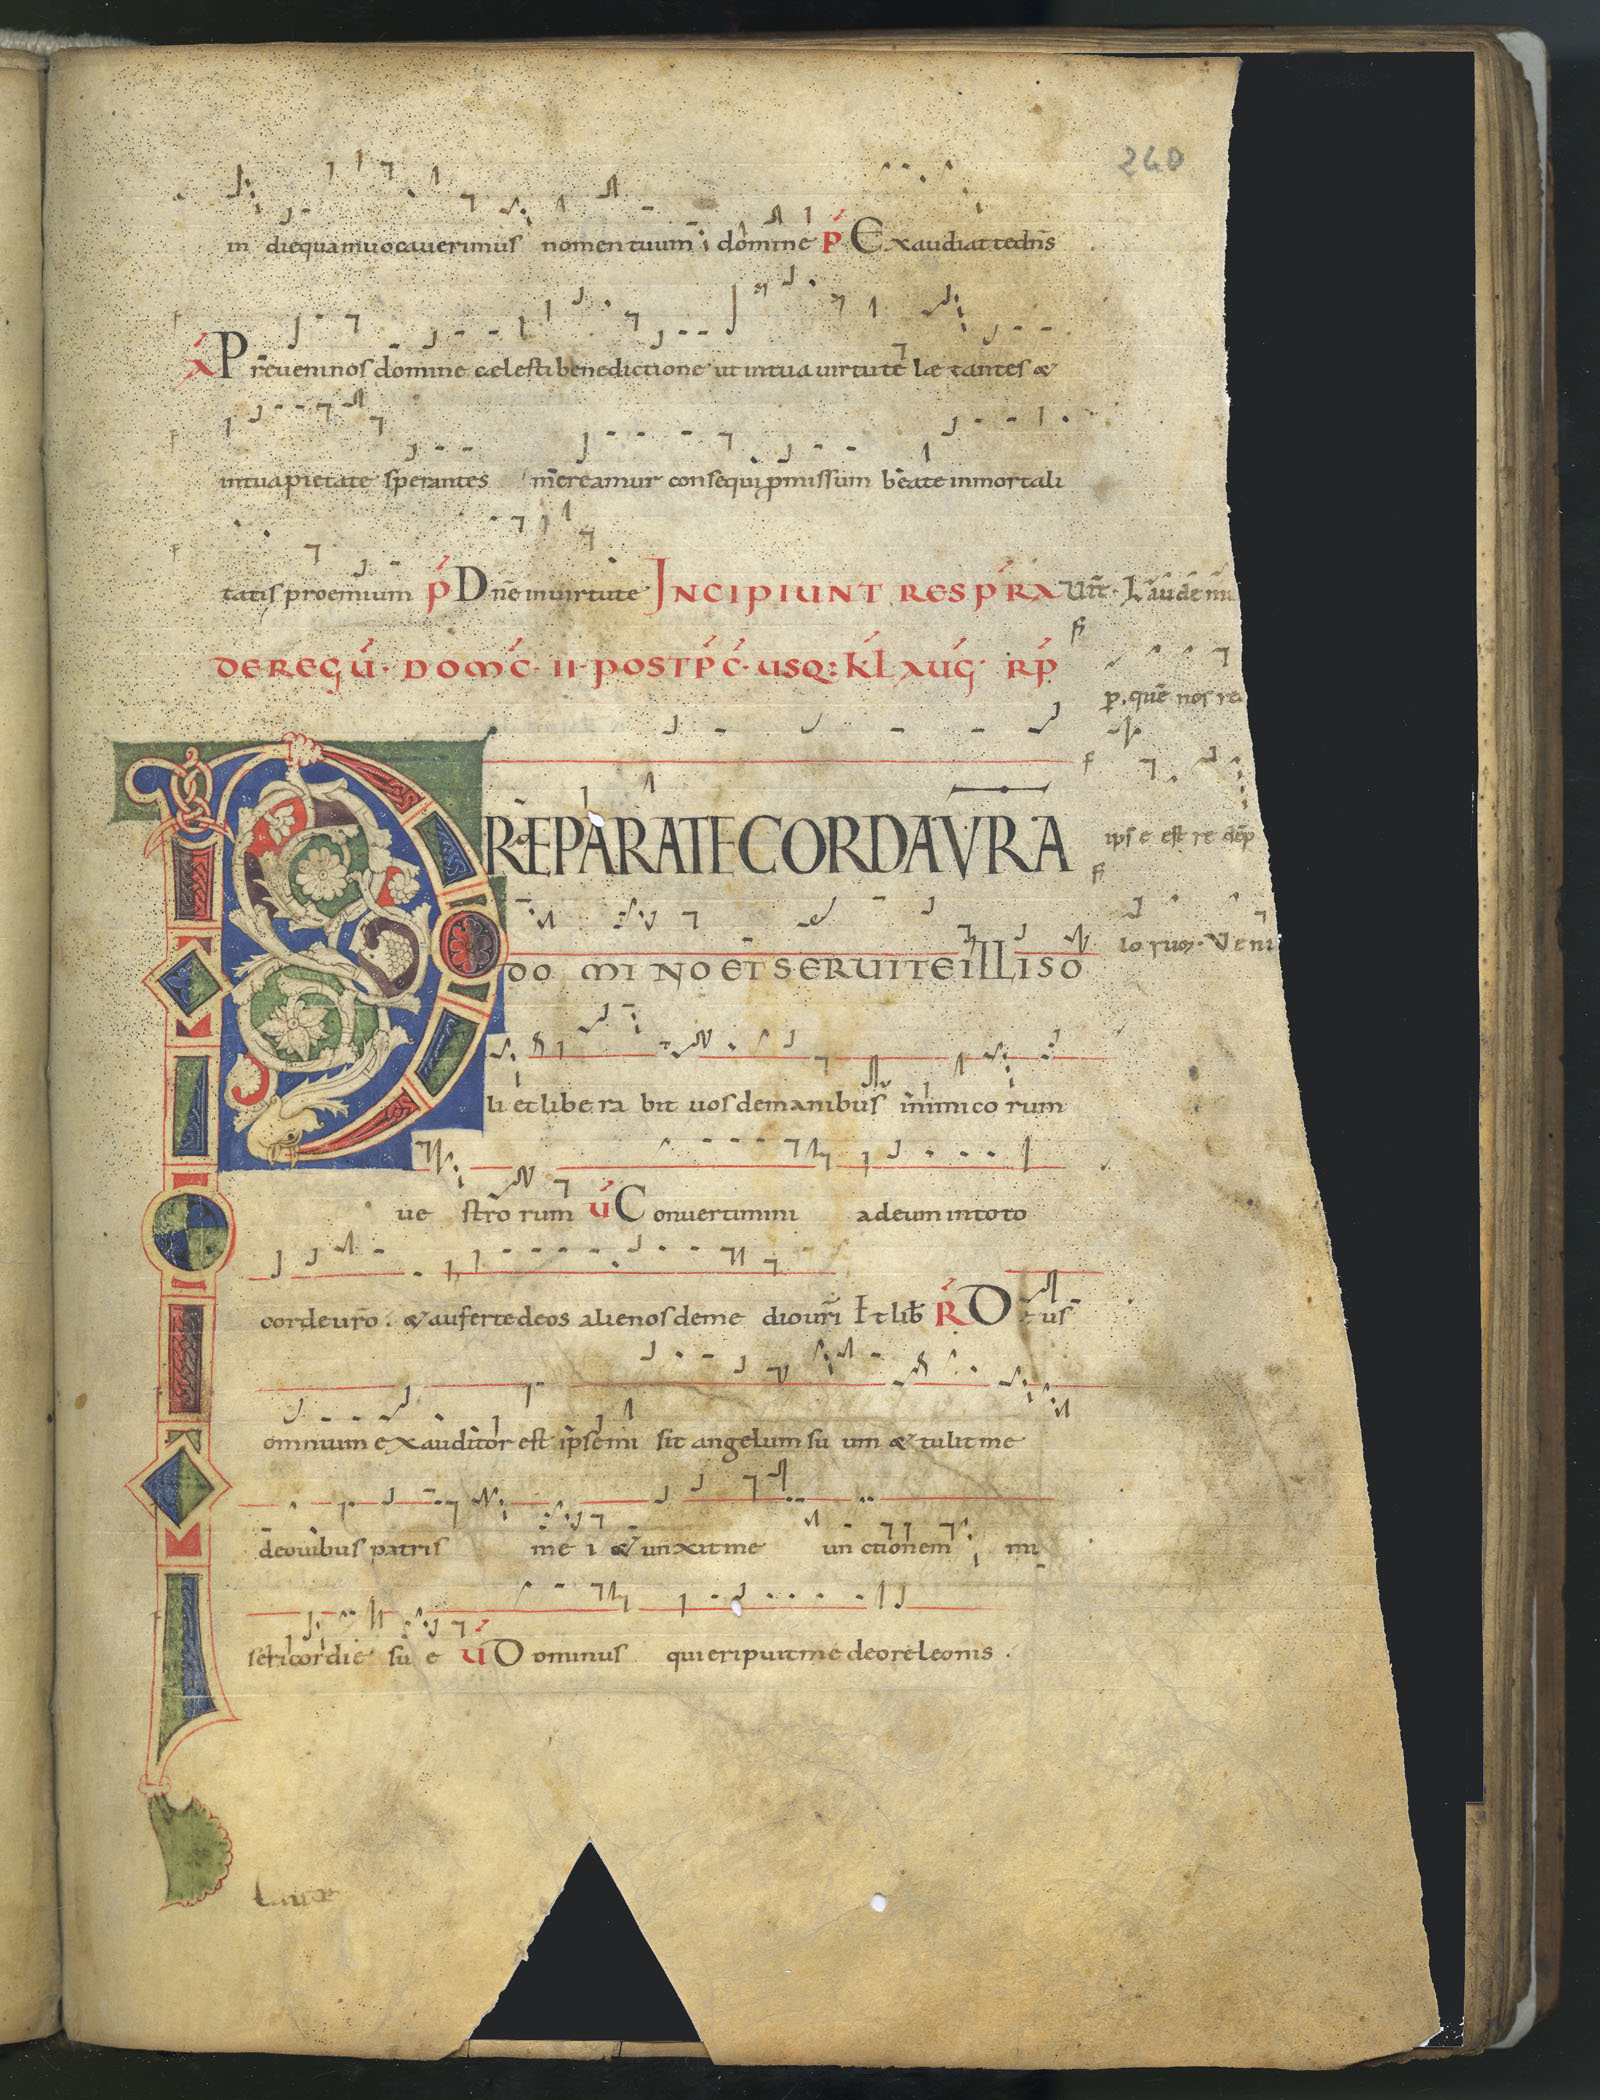 240
in diequamuocauerimus nomentuum i domine p Exaudiattedns
x Preueninos domine cælesti benedictione ut intua uirtute lætantes &
intuapietate sperantes mereamur consequi pmissum beate inmortali
tatis proemium p Dne inuirtute INCIPIUNT RESP RX
DEREGU. DOMC. II. POSTPC. USQ: KL AUG. RP
PREPARATE CORDA VRA
DO MI NO ET SERUITE ILLI SO
li et libera bit uos demanibus inimico rum
ue stro rum V Conuertimini adeum intoto
corde uro. & auferte deos alienos deme dio uri Et lib R D e us
omnium exauditor est ipse mi sit angelum su um & tulit me
deouibus patris me i & unxit me un ctionem mi
sericordie su e V Dominus qui eripuit me deore leonis.
Laudemu
p. quē nos re
ipse est re dēp
lo rum. Veni